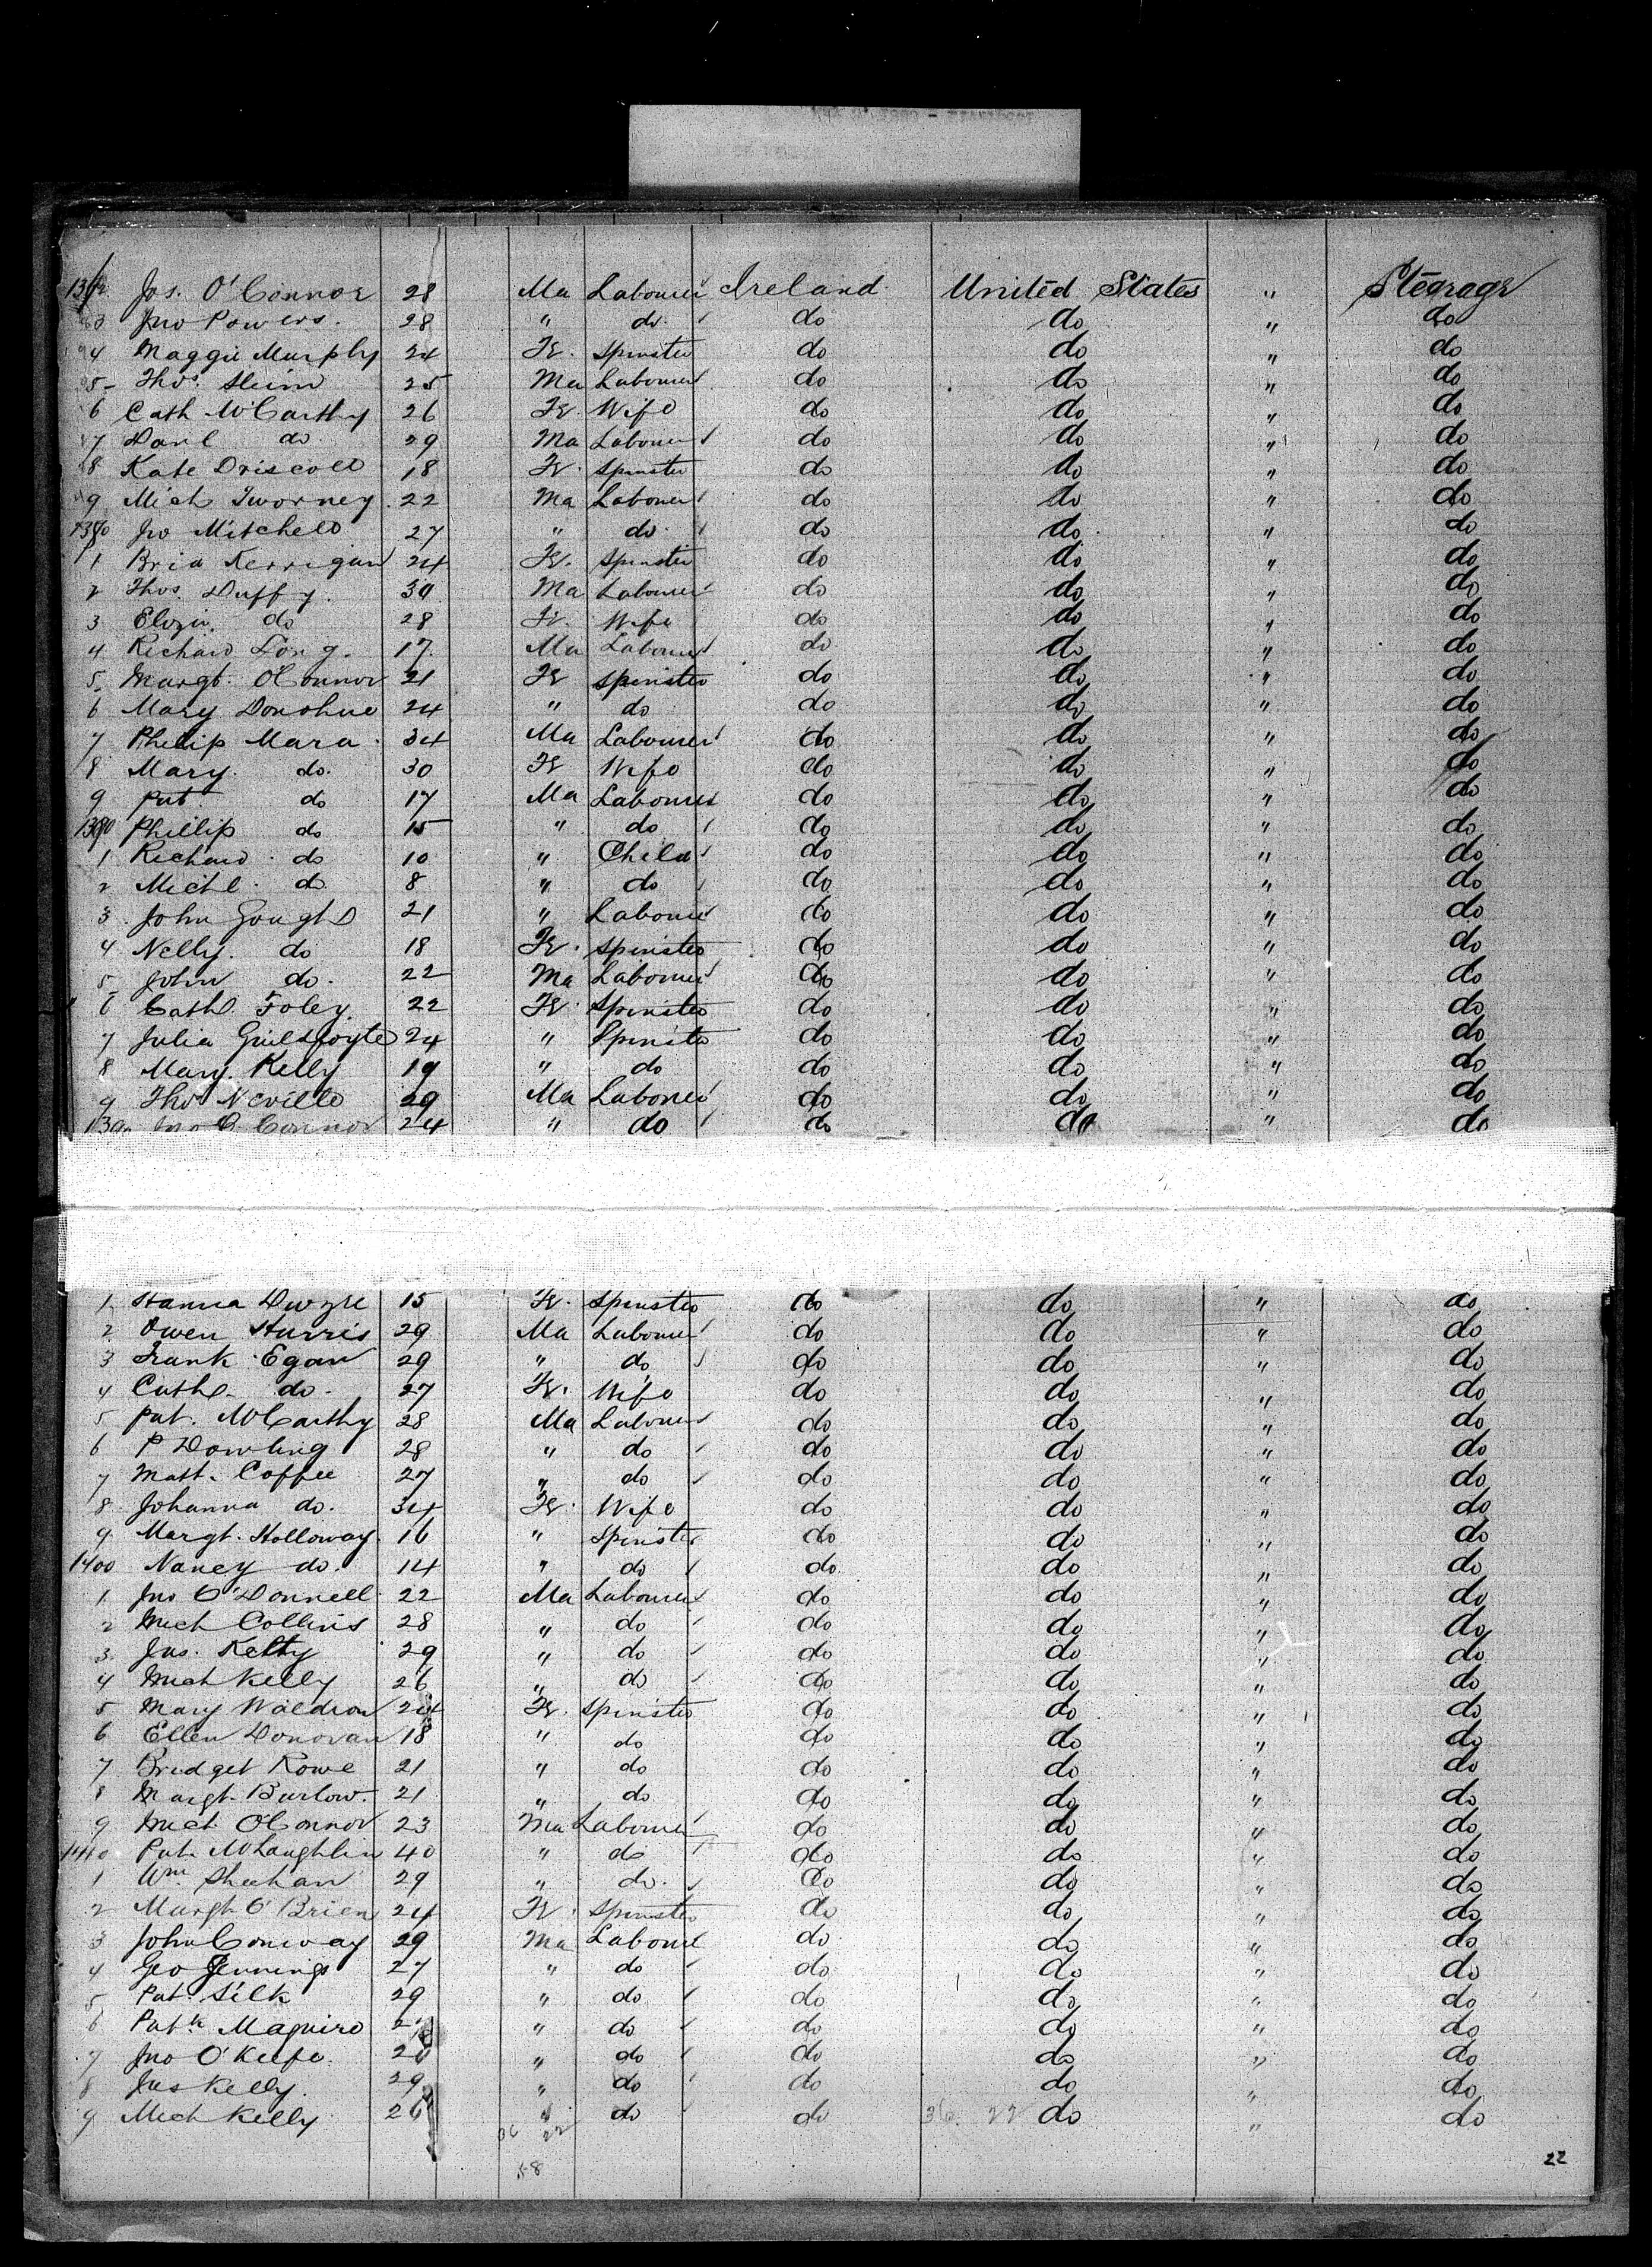 1362 Jas. O'Connor 28 Ma Labourer Ireland United States " Steerage
63 Jno Powers. 28 " do. do do " do
4 Maggie Murphy 24 Fe. Spinster do do " do
5 Thos. 25 Ma Labourer do do " do
6 Cath McCarthy 26 Fe. Wife do do " do
7 Danl do 29 Ma Labourer do do " do
8 Kate Driscoll 18 Fe. Spinster do do " do
9 Mich Tworney 22 Ma Labourer do do " do
1370 Jno Mitchell 27 " do do do " do
1 Brid Kerrigan 24 Fe. Spinster do do " do
2 Thos. Duffy. 30 Ma Labourer do do " do
3 Eliza do 28 Fe. Wife do do " do
4 Richard Long. 17 Ma Labourer do do " do
5 Margt. O'Connor 21 Fe Spinster do do " do
6 Mary Donohue 24 " do do do " do
7 Philip Mara 34 Ma Labourer do do " do
8 Mary. do. 30 Fe Wife do do " do
9 Pat do 17 Ma Labourer do do " do
1380 Phillip do 15 " do do do " do
1 Richard do 10 " Child do do " do
2 Michl. do 8 " do do do " do
3 John Gough 21 " Labourer do do " do
4 Nelly. do 18 Fe. Spinster do do " do
5 John do. 22 Ma Labourer do do " do
6 Cath. Foley. 22 Fe Spinster do do " do
7 Julia 24 " Spinster do do " do
8 Mary Kelly 19 " do do do " do
9 Thos Neville 29 Ma Labourer do do " do
1390 Jno O'Connor 24 " do do do " do
1 Hanna Dwyre 15 Fe. Spinster do do " do
2 Owen Harris 29 Ma Labourer do do " do
3 Frank Egan 29 " do do do " do
4 Cath. do. 27 Fe. Wife do do " do
5 Pat. McCarthy 28 Ma Labourer do do " do
6 P Dowling 28 " do do do " do
7 Matt. Coffee 27 " do do do " do
8 Johanna do. 34 Fe. Wife do do " do
9 Margt. Holloway. 16 " Spinster do do " do
1400 Nancy do. 14 " do do. do " do
1 Jno O'Donnell 22 Ma Labourer do do " do
2 Mich Collins 28 " do do do " do
3 Jas. Kelly 29 " do do do " do
4 Mich Kelly 26 " do do do " do
5 Mary Waldron 24 Fe. Spinster do do " do
6 Ellen Donovan 18 " do do do " do
7 Bridget Rowe 21 " do do do " do
8 Margt. Burlow. 21 " do do do " do
9 Mich O'Connor 23 Ma Labourer do do " do
1410 Pat. McLaughlin 40 " do do do " do
1 Wm. Sheehan 29 " do. do do " do
2 Margt O'Brien 24 Fe. Spinster do do " do
3 John Conway 29 Ma Laboure do do " do
4 Geo Jennings 27 " do do do " do
5 Pat. Silk 29 " do do do " do
6 Patk Maguire " do do do " do
7 Jno O'Keefe. " do do do " do
8 Jas Kelly. 29 " do do do " do
9 Mich Kelly 26 " do do 36. 22 do " do
36 22
58
22